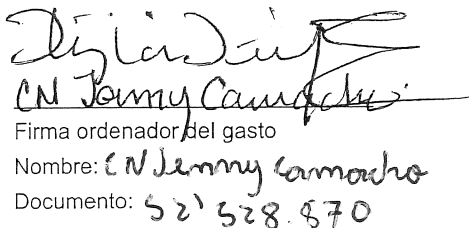 CN Jenny Camacho
Firma ordenador del gasto
Nombre: CN Jenny Camacho
Documento: 52'528.870